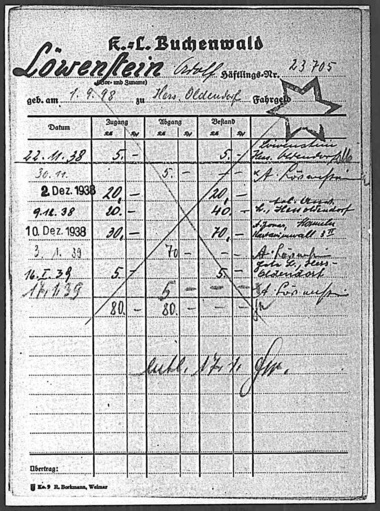 K.-L. Buchenwald
Löwenstein Adolf Häftlings-Nr. 23705
(Vor- und Zuname)
geb. am 1.9.98 zu Hess. Oldendorf Fahrgeld
Datum Zugang Abgang Bestand
RM Rpf RM Rpf RM Rpf
22.11.38 5.- 5.- Löwenstein
Hess. Oldendorf
30.11. 5.- A
2. Dez. 1938 20,- 20,-
9.12.38 20.- 40.- Hess. Oldendorf
10. Dez. 1938 30,- 70,- Hameln
3.1.39 70 - A
16.I.39 5.- 5.- Hess.-
Oldendorf
17.1.39 5 - A
80.- 80.-
entl. 17.1.
Übertrag:
Kn. 9 R. Borkmann, Weimar